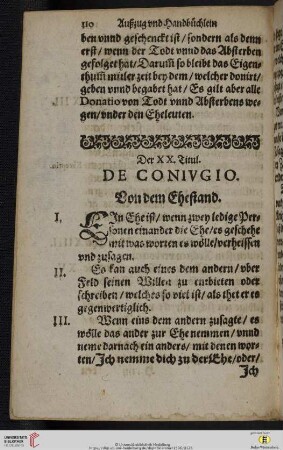 110 Außzug vnd Handbüchlein
ben vnnd geschenckt ist / sondern als denn
erst / wenn der Todt vnnd das Absterben
gefolget hat / Darum̃ so bleibt das Eigen-
thum̃ mitler zeit bey dem / welcher donirt / ge-
geben vnnd begabet hat / Es gilt aber alle
Donatio von Todt vnnd Absterbens we-
gen / vnder den Eheleuten.
Der XX. Titul.
DE CONIVGIO.
Von dem Ehestand.
I. EIn Ehe ist / wenn zwey ledige Per-
sonen einander die Ehe / es geschehe
mit was worten es wölle / verheissen
vnd zusagen.
II. Es kan auch eines dem andern / vber
Feld seinen Willen zu entbieten oder
schreiben / welches so viel ist / als thet er es
gegenwertiglich.
III. Wenn eins dem andern zusagte / es
wölle das ander zur Ehe nemmen / vnnd
neme darnach ein anders / mit denen wor-
ten / Ich nemme dich zu der Ehe / oder /
Ich